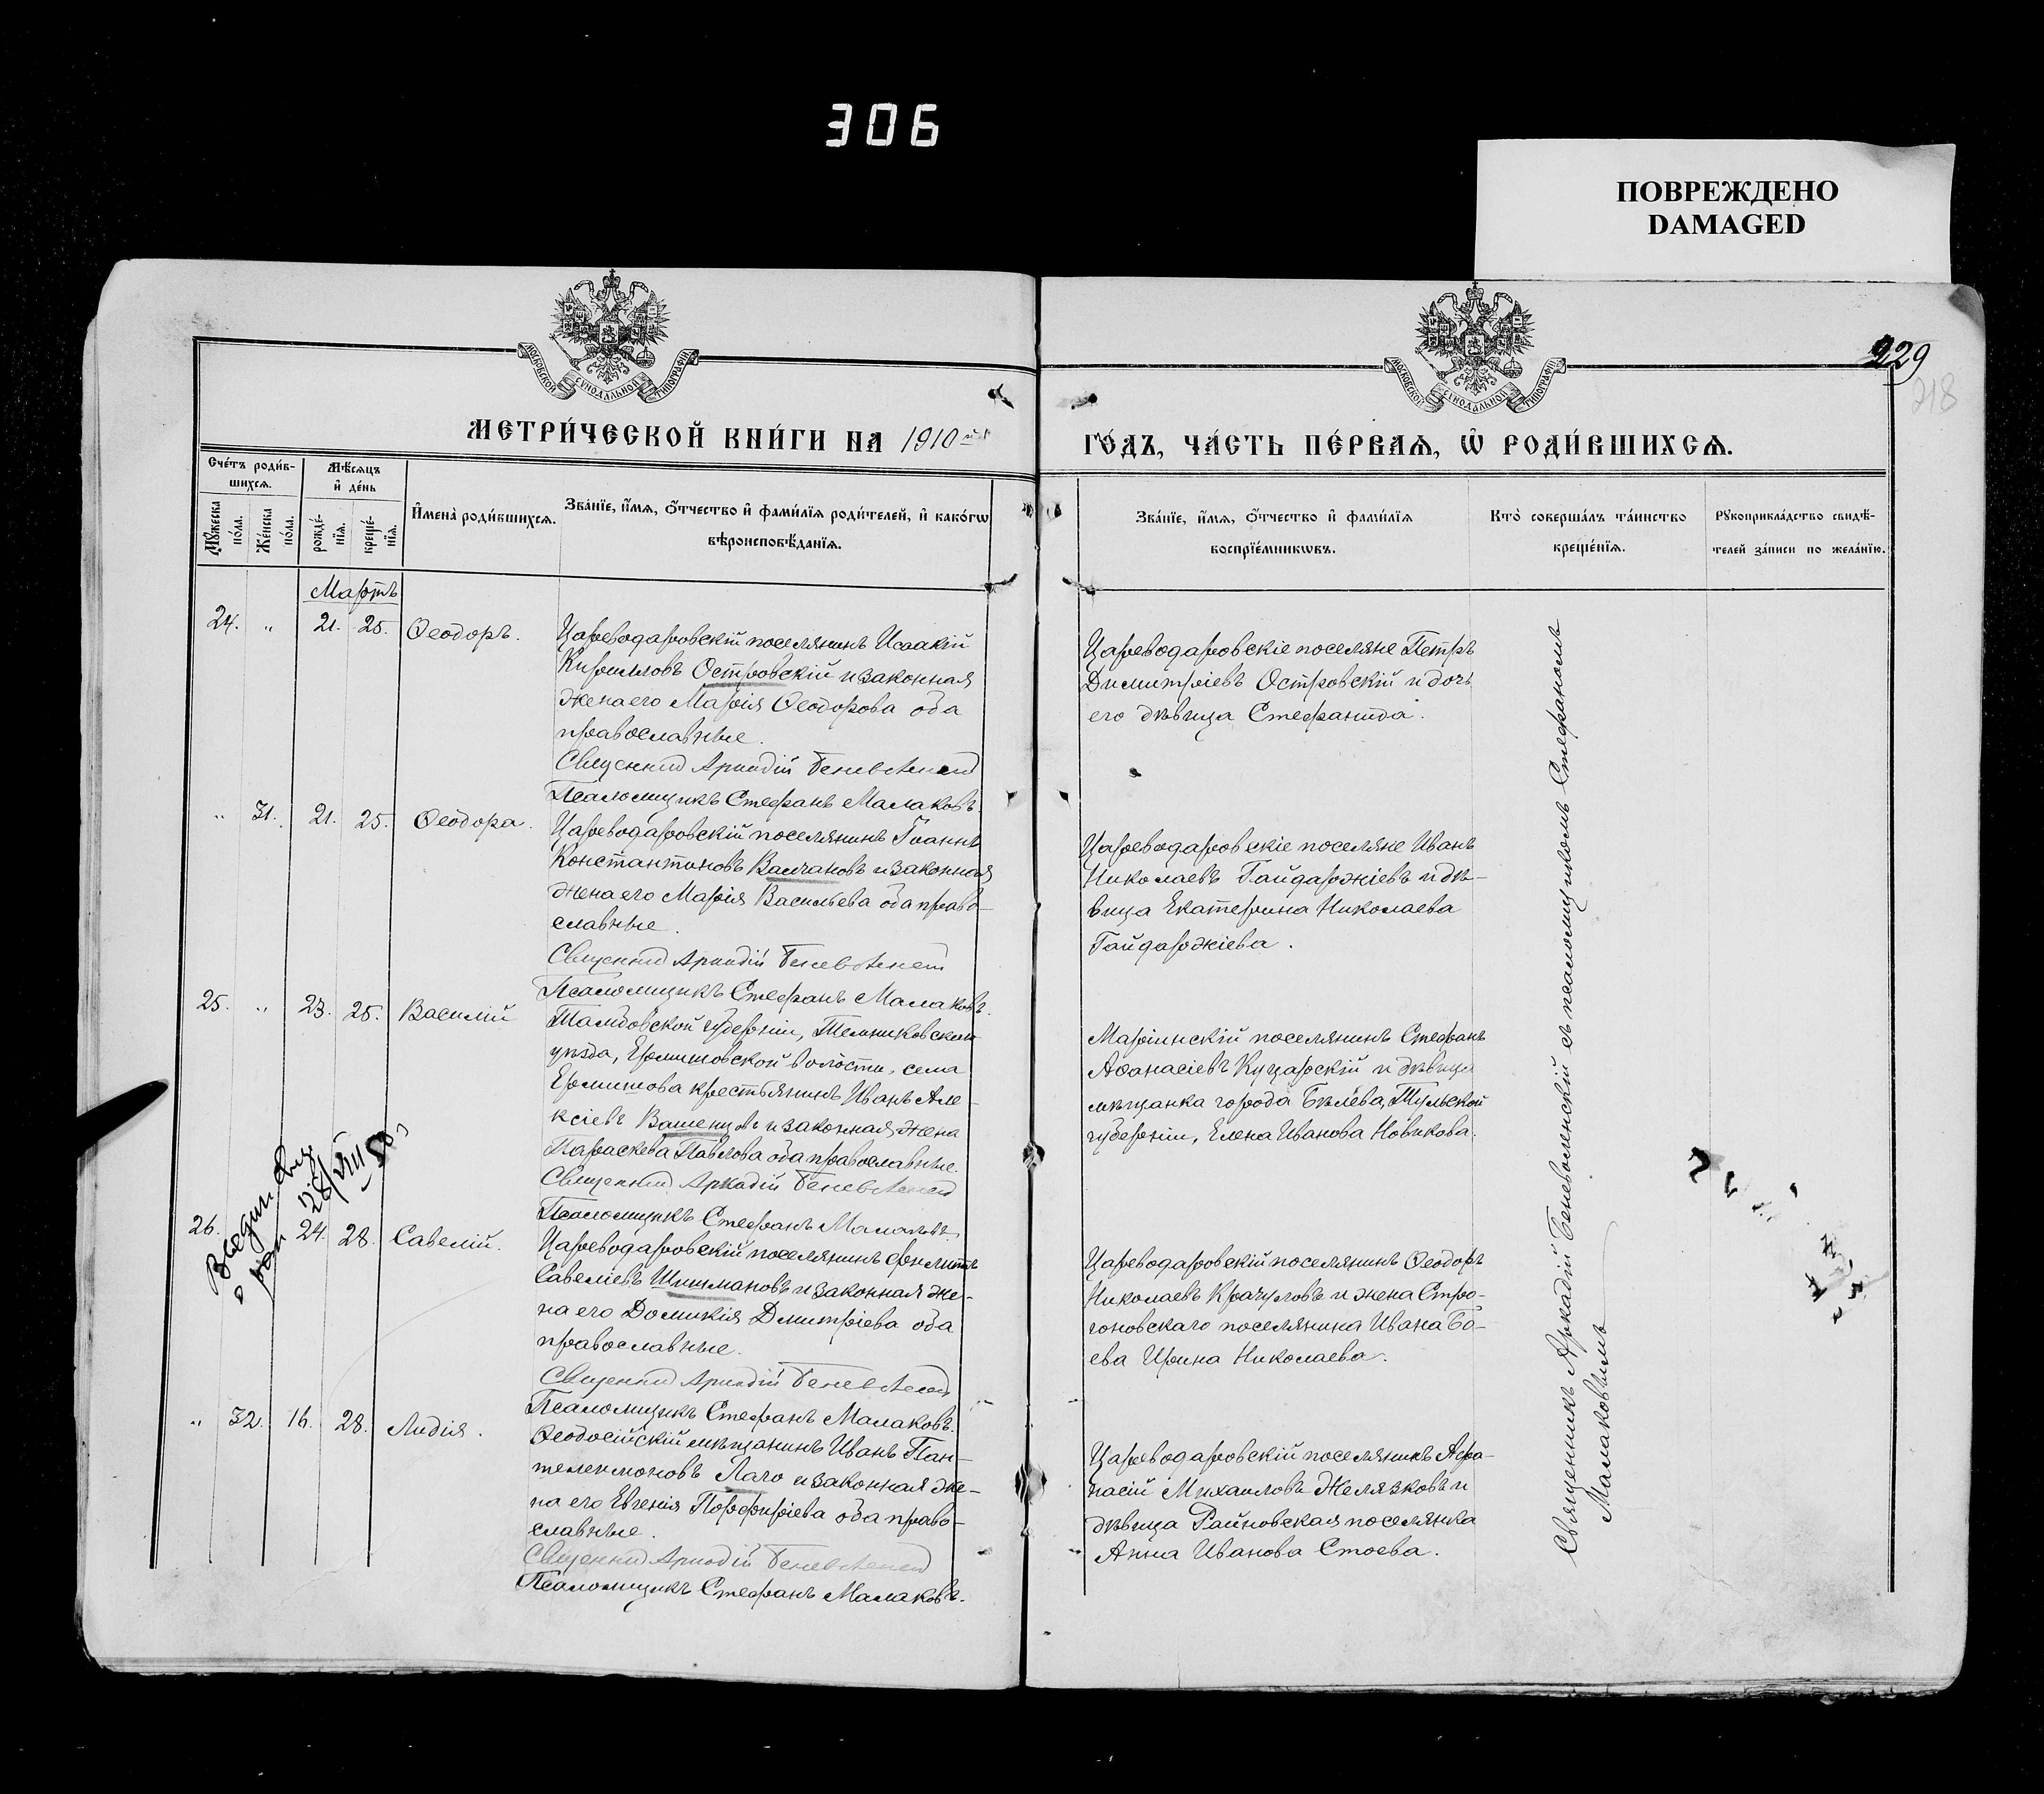 306
ПОВРЕЖДЕНО
DAMAGED
МОСКОВСКОЙ СѴНОДАЛЬНОЙ ТИПОГРАФІИ
МОСКОВСКОЙ СѴНОДАЛЬНОЙ ТИПОГРАФІИ
229
218
МЕТРИ́ЧЕСКОЙ КНИ́ГИ НА 1910
ГО́ДЪ, ЧА́СТЬ ПЕ́РВАѦ, Ѡ РОДИ́ВШИХСѦ.
Сче́тъ роди́в-
шихсѧ.
Мѣ́сѧцъ
и҆ де́нь
Мꙋ́жеска
по́ла.
Же́нска
по́ла.
рожде́-
нїѧ.
креще́-
нїѧ.
И҆мена̀ роди́вшихсѧ.
Зва́нїе, и҆́мѧ, ѻ҆́тчество и҆ фами́лїѧ роди́телей, и҆ како́гѡ
вѣроисповѣ́данїѧ.
Зва́нїе, и҆́мѧ, ѻ҆́тчество и҆ фами́лїѧ
воспрїе́мникѡвъ.
Кто̀ соверша́лъ та́инство
креще́нїѧ.
Рꙋкоприкла́дство свидѣ́-
телей за́писи по жела́нїю.
Мартъ
24. „ 21. 25. Ѳеодоръ.
Цареводаровскій поселянинъ Исаакій
Кирилловъ Островскій и законная
жена его Марія Ѳеодорова оба
православные.
Священник Аркадій Беневоленский
Псаломщикъ Стефанъ Малаковъ.
Цареводаровскіе поселяне Петръ
Димитріевъ Островскій и дочь
его дѣвица Стефанида.
„ 31. 21. 25. Ѳеодора.
Цареводаровскій поселянинъ Іоаннъ
Константиновъ Валчановъ и законная
жена его Марія Васильева оба право-
славные.
Священник Аркадій Беневоленский
Псаломщикъ Стефанъ Малаковъ.
Цареводаровскіе поселяне Иванъ
Николаевъ Гайдаржіевъ и дѣ-
вица Екатерина Николаева
Гайдаржіева.
25. „ 23. 25. Василій
Тамбовской губерніи, Темниковскаго
уѣзда, Ермишовской волости, села
Ермишова крестьянинъ Иванъ Але-
ксіевъ и законная жена
Параскева Павлова оба православные.
Священник Аркадій Беневоленский
Псаломщикъ Стефанъ Малаковъ.
Маріинскій поселянинъ Стефанъ
Аѳанасіевъ Куцарскій и дѣвица
мѣщанка города Бѣлёва, Тульской
губерніи, Елена Иванова Новикова.
28/VIII 50
26. 24. 28. Савелій.
Цареводаровскій поселянинъ Филиппъ
Савеліевъ Шишмановъ и законная же-
на его Домникія Дмитріева оба
православные.
Священник Аркадій Беневоленский
Псаломщикъ Стефанъ Малаковъ.
Цареводаровскій поселянинъ Ѳеодоръ
Николаевъ Крачуловъ и жена Стро-
гоновскаго поселянина Ивана Бо-
ева Ирина Николаева.
„ 32. 16. 28. Лидія.
Ѳеодосійскій мѣщанинъ Иванъ Пан-
телеимоновъ Лаго и законная же-
на его Евгенія Порфиріева оба право-
славные.
Священник Аркадій Беневоленский
Псаломщикъ Стефанъ Малаковъ.
Цареводаровскій поселянинъ Афа-
насій Михаиловъ Желязковъ и
дѣвица Райновская поселянка
Анна Иванова Стоева.
Священникъ Аркадій Беневоленскій съ псаломщикомъ Стефаномъ
Малаковымъ